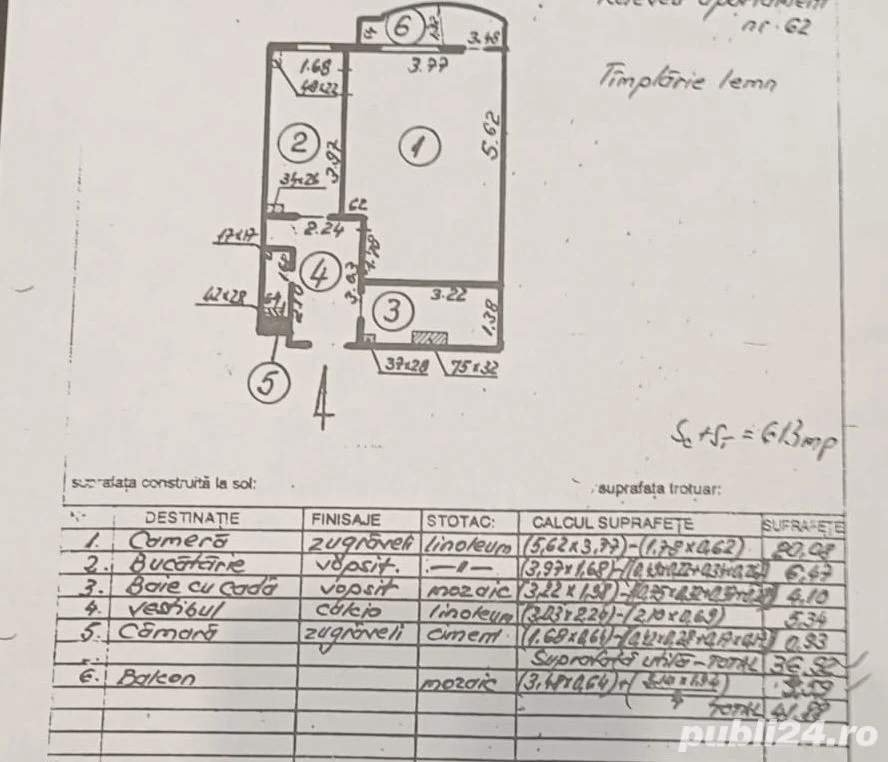 Releveu apartament
nr. 62
Tîmplărie lemn
6
3.48
1.68
3.77
48x22
2
1
3.97
5.62
34x26
62
2.24
17x17
1.78
4
3.22
3
1.38
42x28
64
2.10
37x28
75x32
5
4
Sc + ST = 61.3 mp
suprafața construită la sol:
suprafața trotuar:
DESTINAȚIE FINISAJE STOTAC: CALCUL SUPRAFEȚE SUPRAFEȚE
1. Cameră zugrăveli linoleum (5,62x3,77)-(1,78x0,62) 20,08
2. Bucătărie vopsit. —"— (3,97x1,68)- 6,47
3. Baie cu cadă vopsit mozaic 4,10
4. vestibul calcio linoleum -(2,10x0,69) 5,34
5. Cămară zugrăveli ciment. 0,93
Suprafață utilă-TOTAL 36,92
6. Balcon mozaic (3,48x0,64)+
TOTAL 41,88
publi24.ro